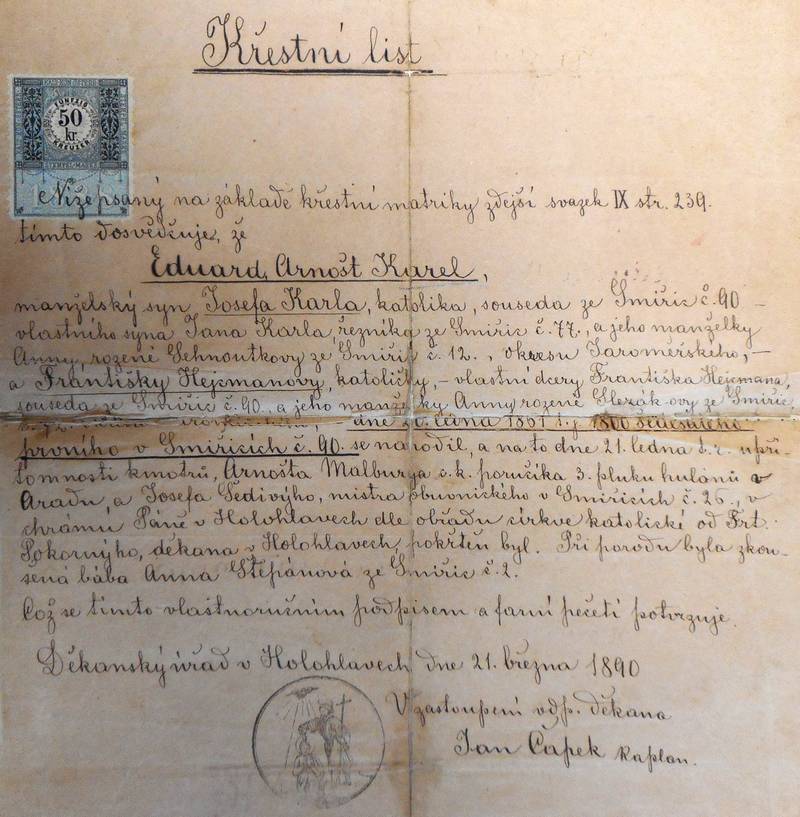 Křestní list
FÜNFZIG
50
kr.
KREUZER
STEMPEL-MARKE
Nížepsaný na základě křestní matriky zdejší svazek IX str. 239.
tímto dosvědčuje, že
Eduard, Arnošt Karel,
manželský syn Josefa Karla, katolíka, souseda ze Smiřic č. 90 –
vlastního syna Jana Karla, řezníka ze Smiřic č. 77., a jeho manželky
Anny, rozené Sehnoutkovy ze Smiřic č. 12., okresu Jaroměřského, –
a Františky Hejcmanovy, katoličky, – vlastní dcery Františka Hejcmana,
souseda ze Smiřic č. 90., a jeho manželky Anny rozené Slezák-ovy ze Smiřic,
dne 20. ledna 1861 t. j. 1800 šedesátého
prvního v Smiřicích č. 90. se narodil, a na to dne 21. ledna t. r. u pří-
tomnosti kmotrů, Arnošta Malburga c. k. poručíka 3. pluku hulánů v
Aradu, a Josefa Šedivýho, mistra obuvnického v Smiřicích č. 26., v
chrámu Páně v Holohlavech dle obřadu církve katolické od Frt.
Pokornýho, děkana v Holohlavech pokřtěn byl. Při porodu byla zkou-
šená bába Anna Štěpánová ze Smiřic č. 2.
Což se tímto vlastnoručním podpisem a farní pečetí potvrzuje.
Děkanský úřad v Holohlavech dne 21. března 1890
V zastoupení vdp. děkana
Jan Čapek kaplan.